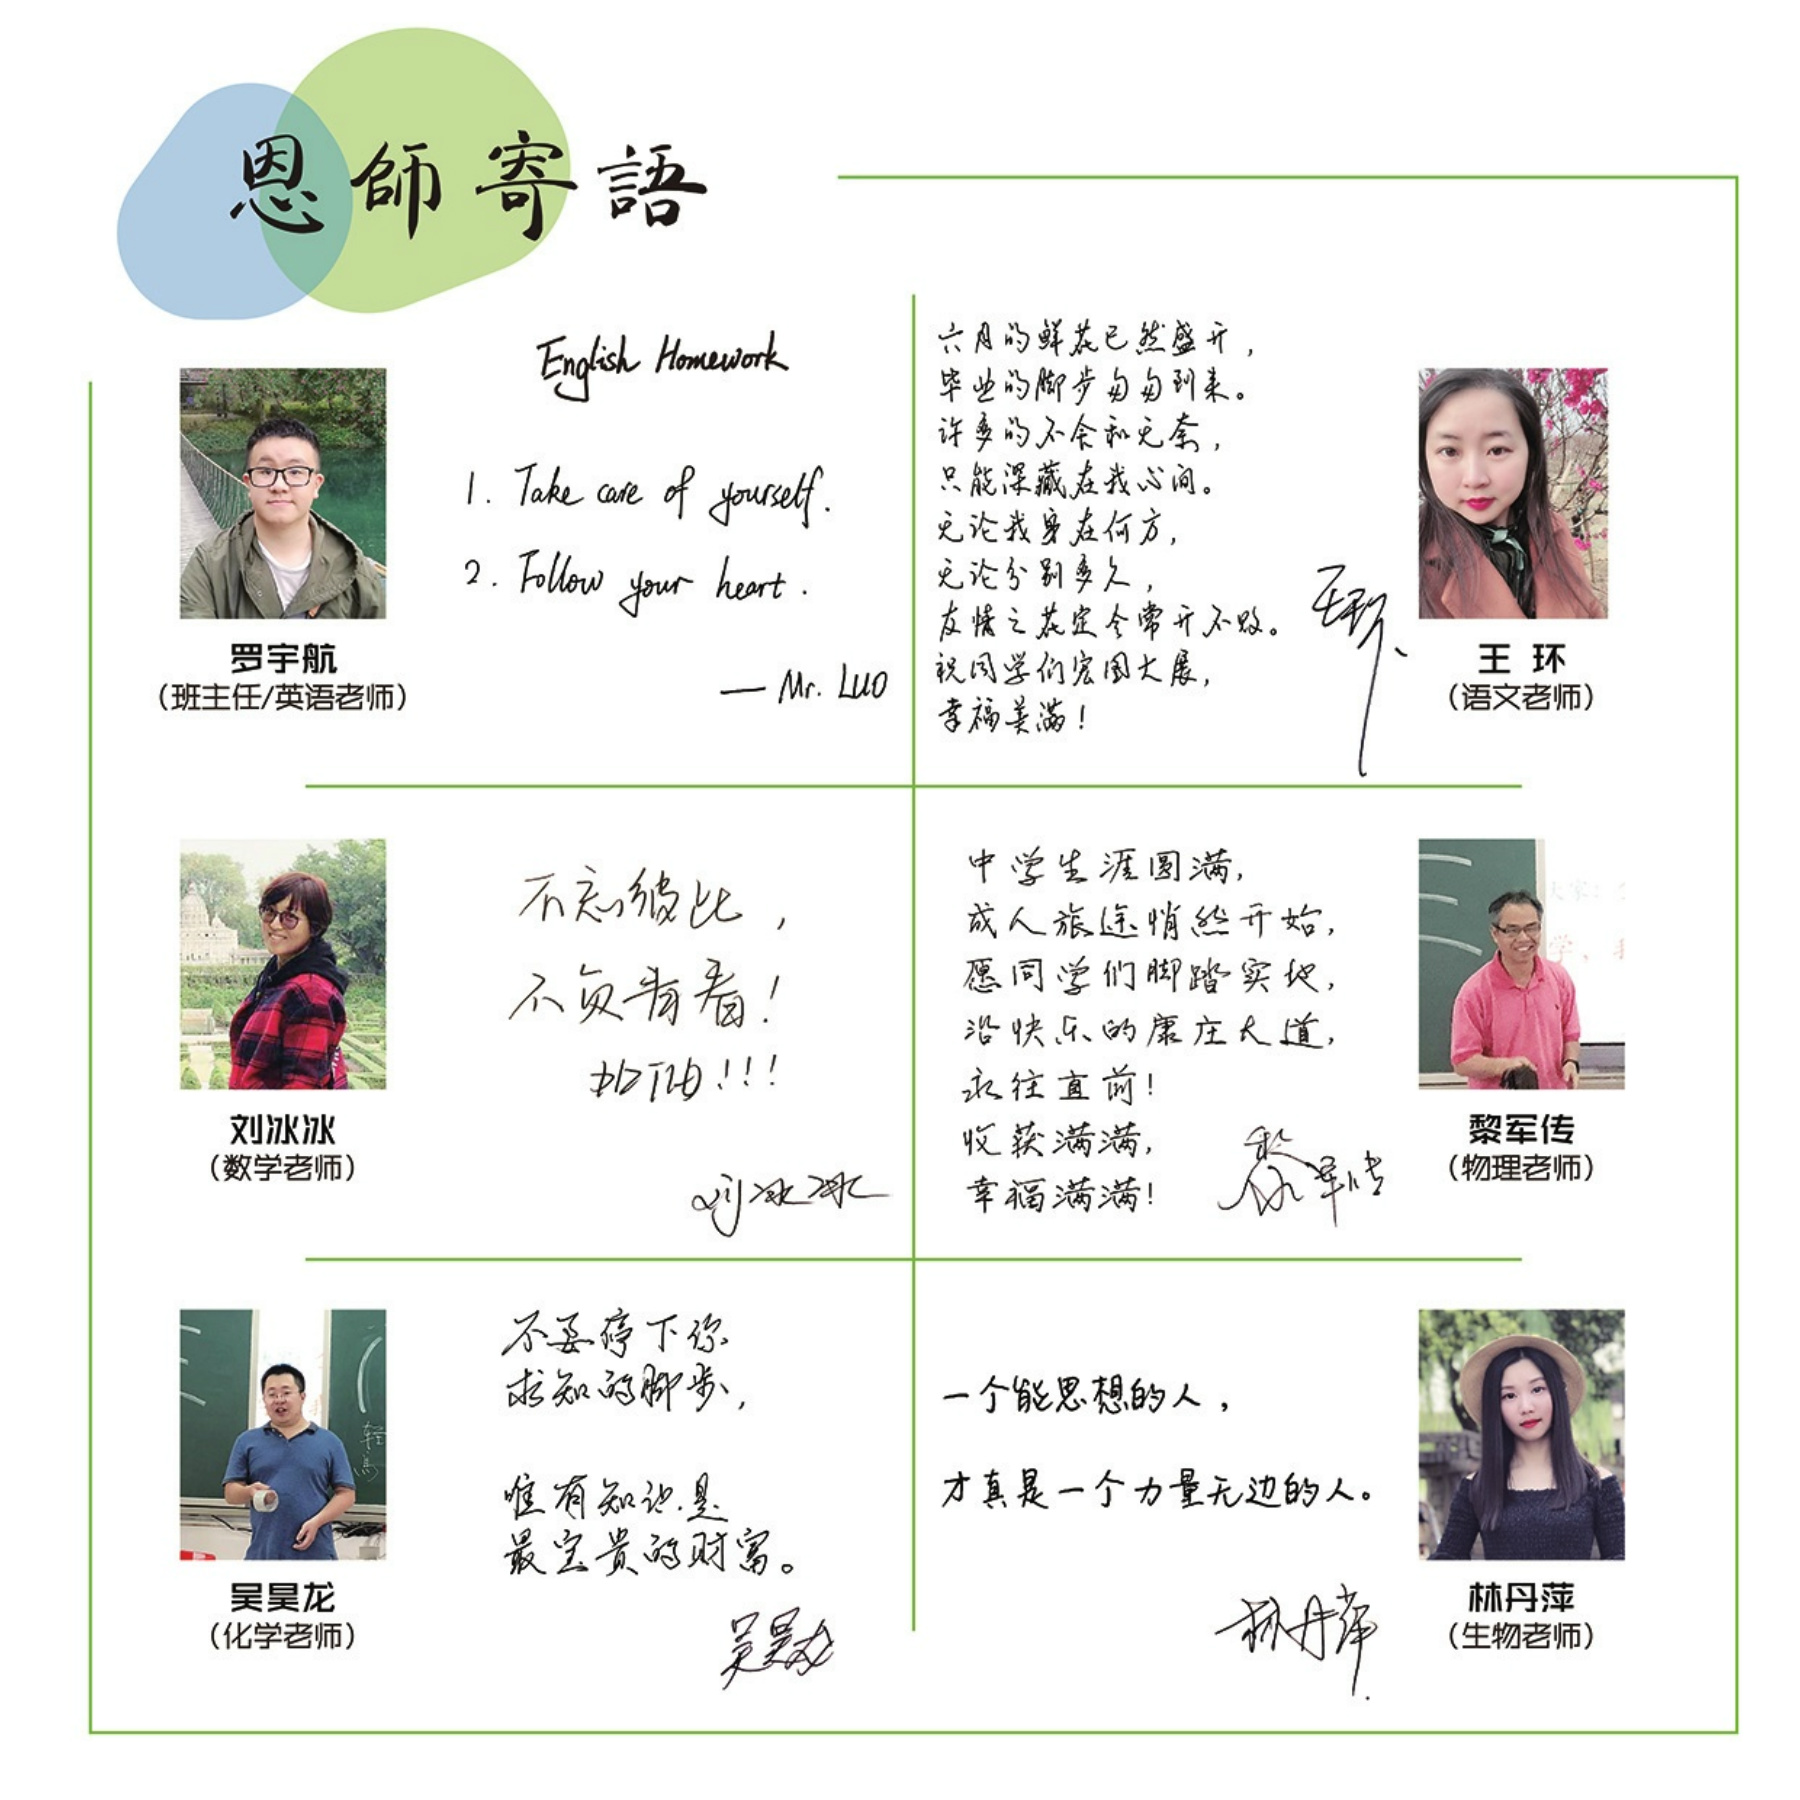 恩師寄語
English Homework
1. Take care of yourself.
2. Follow your heart.
— Mr. Luo
罗宇航
（班主任/英语老师）
六月的鲜花已然盛开，
毕业的脚步匆匆到来。
许多的不舍和无奈，
只能深藏在我心间。
无论我身在何方，
无论分别多久，
友情之花定会常开不败。
祝同学们宏图大展，
幸福美满！
王环
王 环
（语文老师）
不忘彼此，
不负青春！
加油!!!
刘冰冰
刘冰冰
（数学老师）
中学生涯圆满，
成人旅途悄然开始，
愿同学们脚踏实地，
沿快乐的康庄大道，
永往直前！
收获满满，
幸福满满！
黎军传
黎军传
（物理老师）
不要停下你
求知的脚步，
唯有知识是
最宝贵的财富。
吴昊龙
吴昊龙
（化学老师）
一个能思想的人，
才真是一个力量无边的人。
林丹萍
林丹萍
（生物老师）